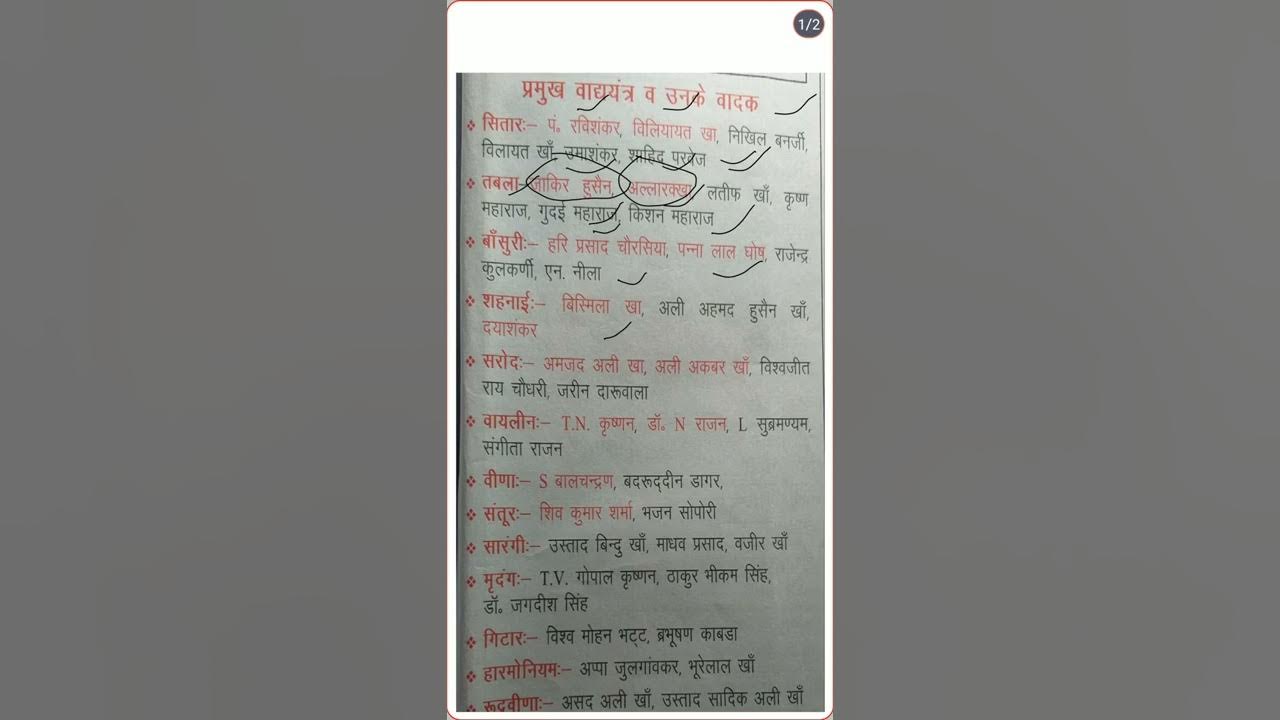 1/2
प्रमुख वाद्ययंत्र व उनके वादक
सितारः– पं० रविशंकर, विलियायत खा, निखिल बनर्जी,
विलायत खाँ, उमाशंकर, शाहिद परवेज
तबला– जाकिर हुसैन, अल्लारक्खा, लतीफ खाँ, कृष्ण
महाराज, गुदई महाराज, किशन महाराज
बाँसुरीः– हरि प्रसाद चौरसिया, पन्ना लाल घोष, राजेन्द्र
कुलकर्णी, एन. नीला
शहनाईः– बिस्मिला खा, अली अहमद हुसैन खाँ,
दयाशंकर
सरोदः– अमजद अली खा, अली अकबर खाँ, विश्वजीत
राय चौधरी, जरीन दारूवाला
वायलीनः– T.N. कृष्णन, डॉ० N राजन, L सुब्रमण्यम,
संगीता राजन
वीणाः– S बालचन्द्रण, बदरूद्दीन डागर,
संतूरः– शिव कुमार शर्मा, भजन सोपोरी
सारंगीः– उस्ताद बिन्दु खाँ, माधव प्रसाद, वजीर खाँ
मृदंगः– T.V. गोपाल कृष्णन, ठाकुर भीकम सिंह,
डॉ० जगदीश सिंह
गिटारः– विश्व मोहन भट्ट, ब्रभूषण काबडा
हारमोनियमः– अप्पा जुलगांवकर, भूरेलाल खाँ
रूद्रवीणाः– असद अली खाँ, उस्ताद सादिक अली खाँ